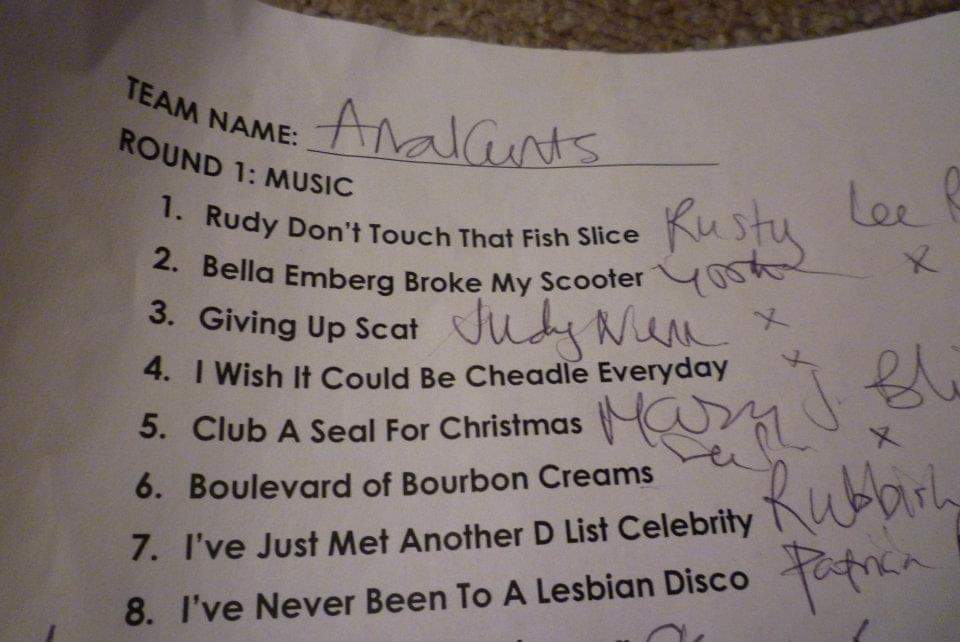 TEAM NAME: AnalCunts
ROUND 1: MUSIC
1. Rudy Don't Touch That Fish Slice Rusty Lee
2. Bella Emberg Broke My Scooter x
3. Giving Up Scat Judy x
4. I Wish It Could Be Cheadle Everyday x
5. Club A Seal For Christmas Mary J Bli x
6. Boulevard of Bourbon Creams
7. I've Just Met Another D List Celebrity Rubbish
8. I've Never Been To A Lesbian Disco Patricia